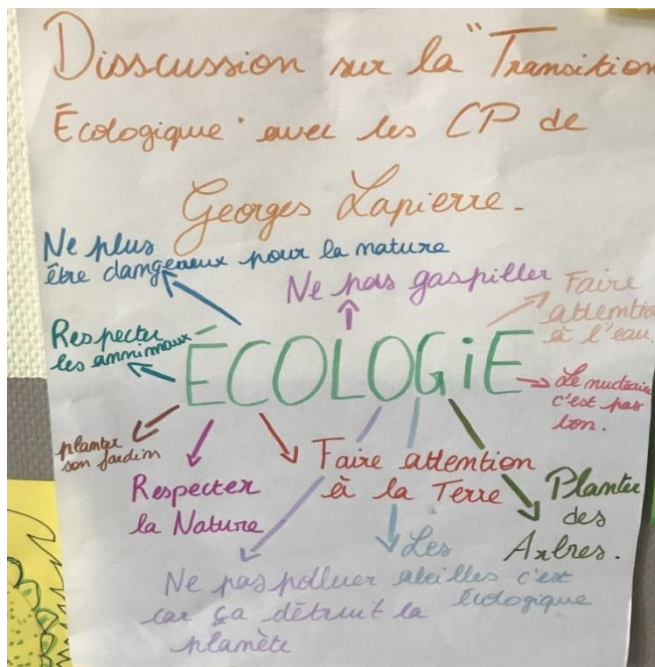 Disscussion sur la "Transition
Écologique" avec les CP de
Georges Lapierre.
Ne plus
être dangeaeux pour la nature
Ne pas gaspiller
Faire
attention
à l'eau.
Respecter
les annimaux
ÉCOLOGiE
Le nucléaire
c'est pas
bon.
planter
son jardin
Respecter
la Nature
Faire attention
à la Terre
Planter
des
Arbres.
Les
abeilles c'est
écologique
Ne pas polluer
car ça détruit la
planète